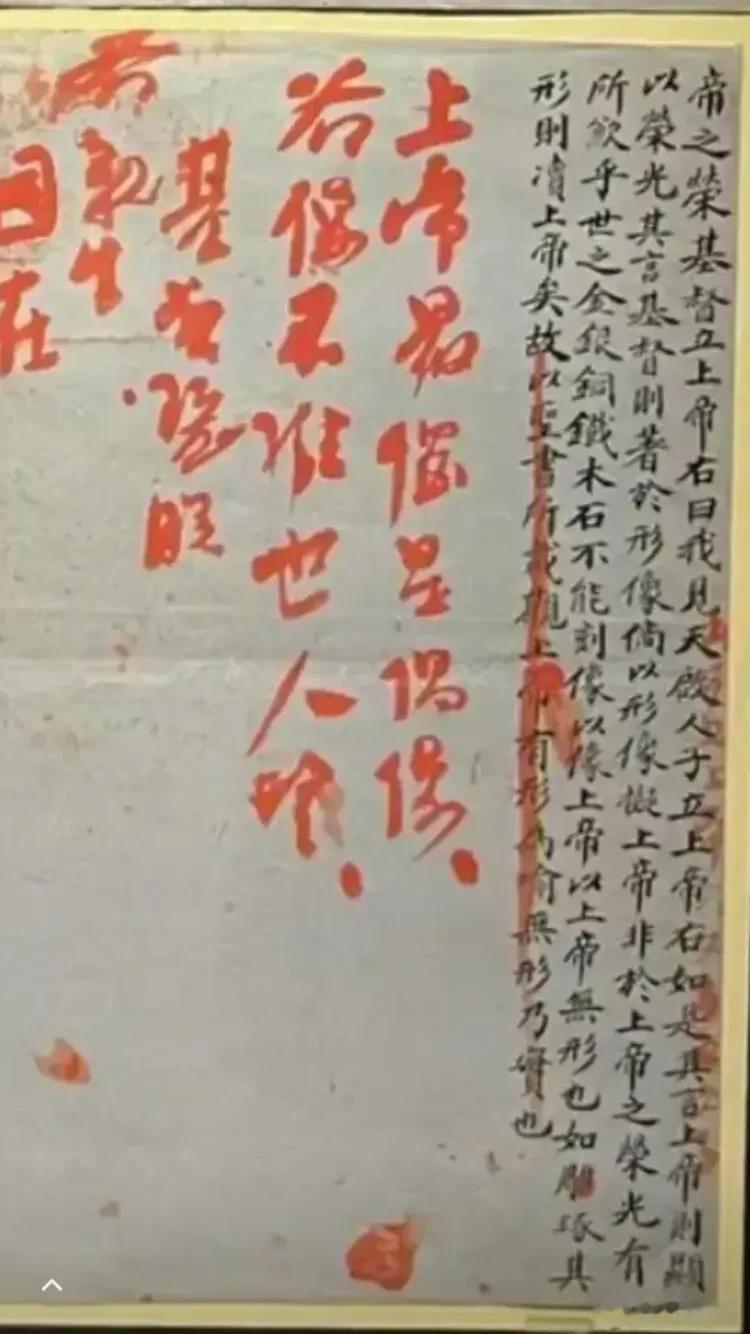 帝之榮基督立上帝右曰我見天啟人子立上帝右如是其言上帝則顯
以榮光其言基督則著於形像倘以形像擬上帝非於上帝之榮光有
所歉乎世之金銀銅鐵木石不能刻像以像上帝以上帝無形也如雕琢其
形則瀆上帝矣故以聖書所載觀上帝有形為喻無形乃實也
上帝最惱是偶像、
爺像不准世人望、
基督暨朕
爺親生
因在